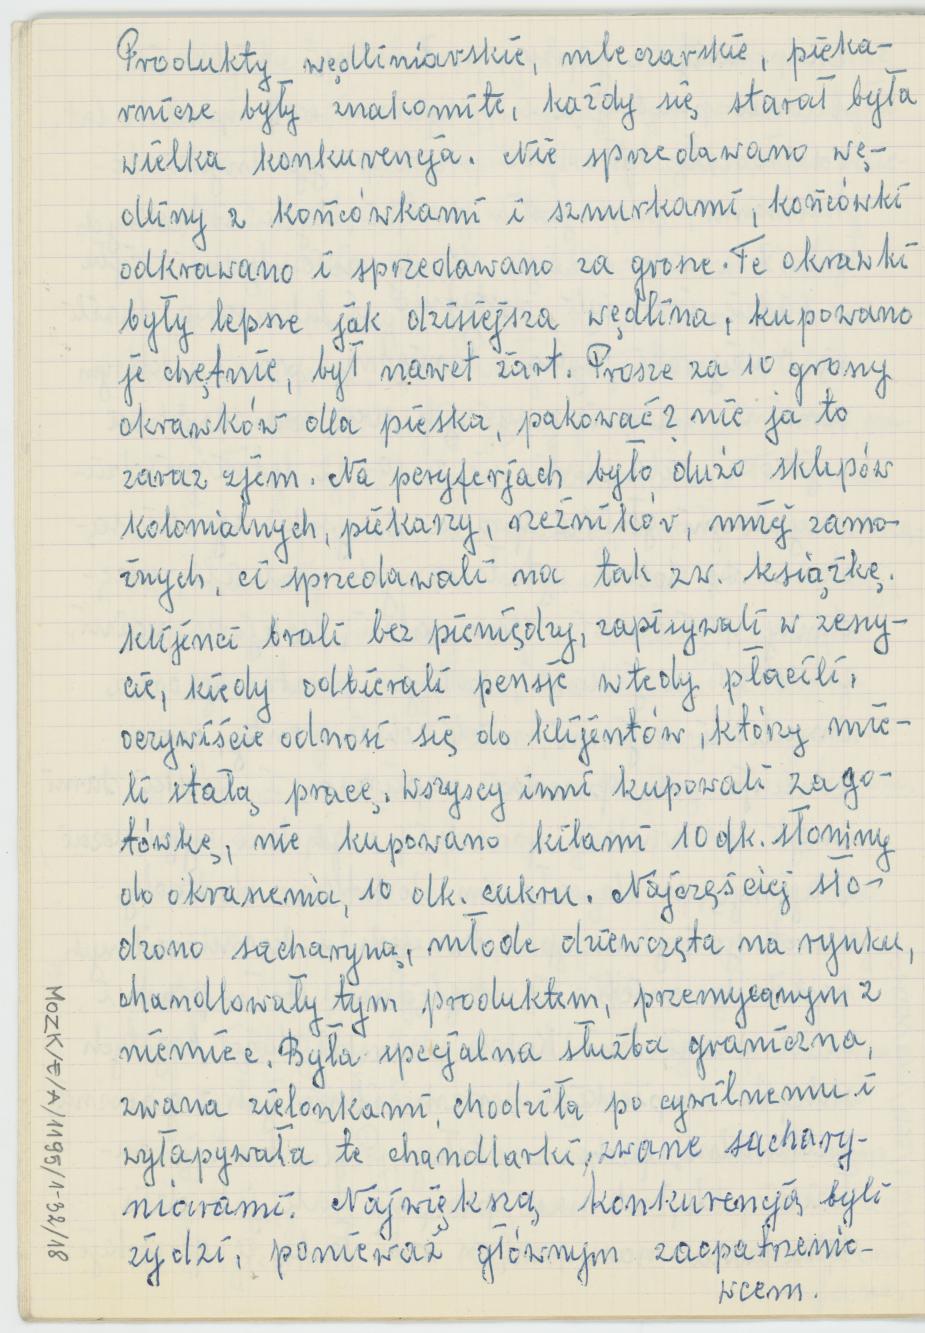 Produkty wędliniarskie, mleczarskie, pieka-
rnicze były znakomite, każdy się starał była
wielka konkurencja. Nie sprzedawano wę-
dliny z końcówkami i sznurkami, końcówki
odkrawano i sprzedawano za grosze. Te okrawki
były lepsze jak dzisiejsza wędlina, kupowano
je chętnie, był nawet żart. Prosze za 10 groszy
okrawków dla pieska, pakować? nie ja to
zaraz zjem. Na peryferjach było dużo sklepów
kolonialnych, piekarzy, rzeźników, mniej zamo-
żnych, ci sprzedawali na tak zw. książkę.
klijenci brali bez pieniędzy, zapisywali w zeszy-
cie, kiedy odbierali pensje wtedy płacili,
oczywiście odnosi się do klijentów, którzy mie-
li stałą pracę. Wszyscy inni kupowali za go-
tówkę, nie kupowano kilami 10 dk. słoniny
do okraszenia, 10 dk. cukru. Najczęściej sło-
dzono sacharyną, młode dziewczęta na rynku,
chandlowały tym produktem, przemycanym z
niemiec. Była specjalna służba graniczna,
zwana zielonkami, chodziła po cywilnemu i
wyłapywała te chandlarki, zwane sachary-
niarami. Największą konkurencją byli
żydzi, ponieważ głównym zaopatrzenio-
wcem.
MOZK/E/A/1195/1-32/18